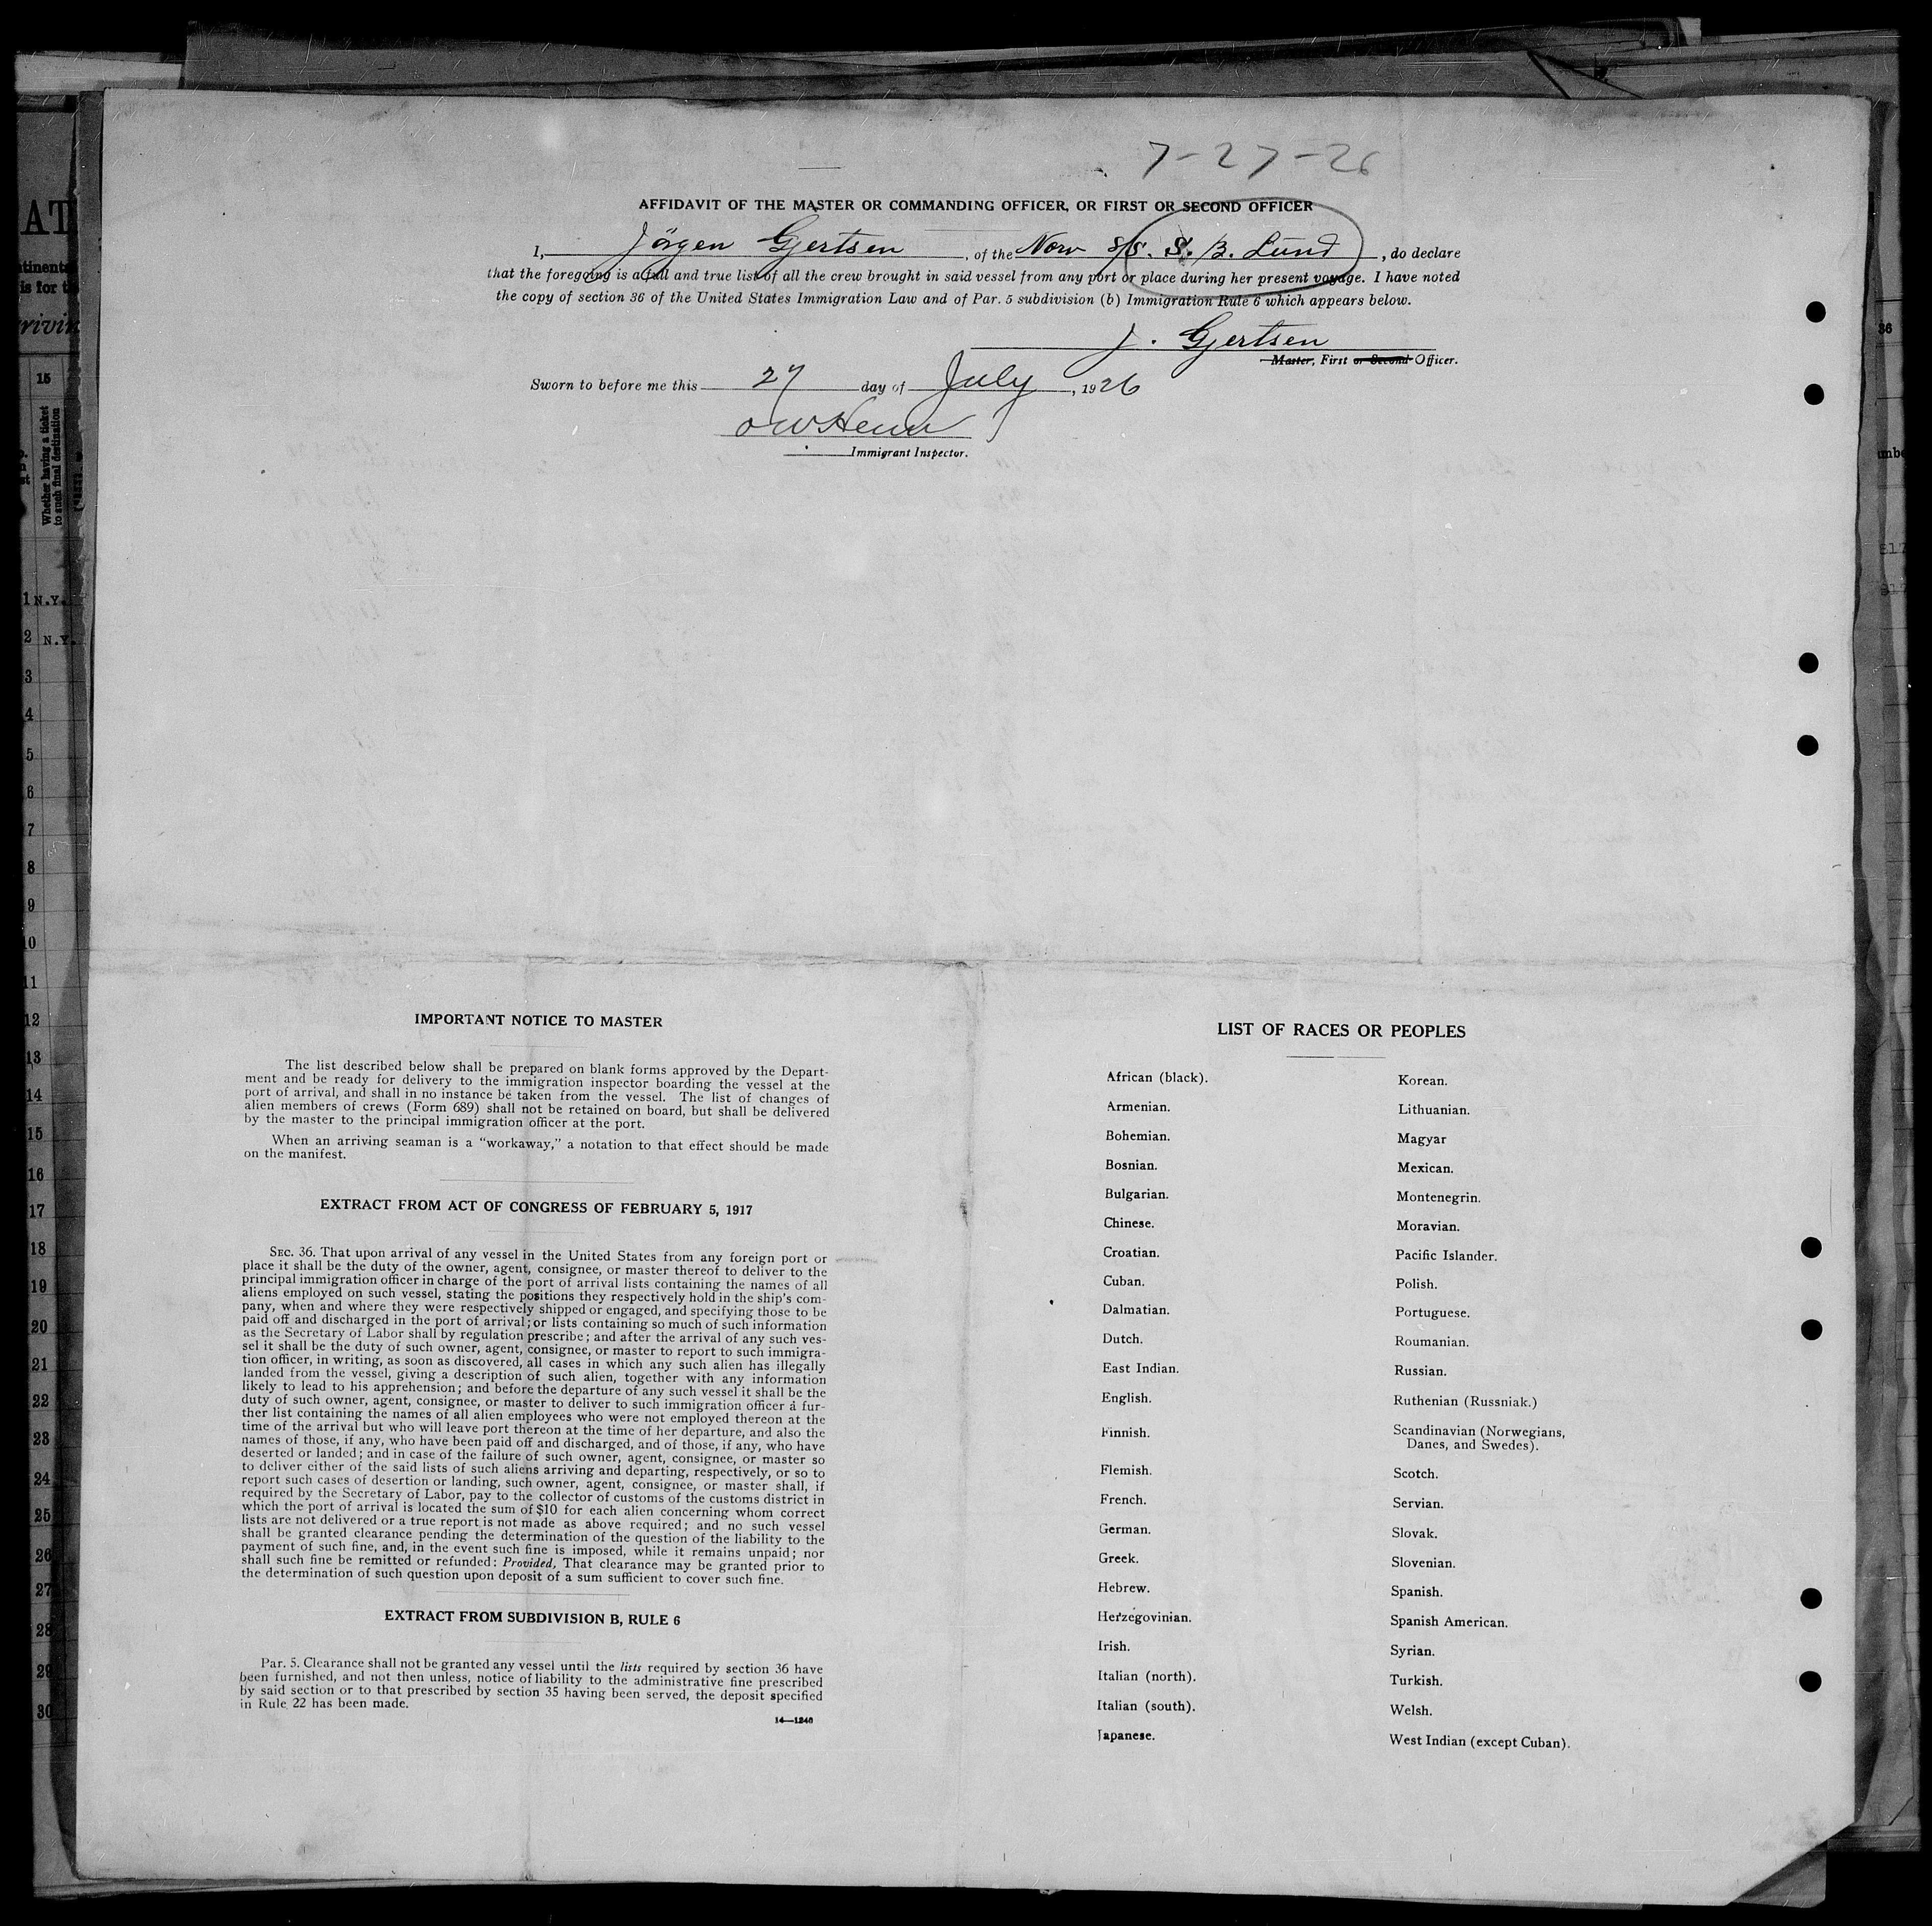 7-27-26
AFFIDAVIT OF THE MASTER OR COMMANDING OFFICER, OR FIRST OR SECOND OFFICER
I, Jörgen Gjertsen, of the Norw s/s. S. B. Lund, do declare
that the foregoing is a full and true list of all the crew brought in said vessel from any port or place during her present voyage. I have noted
the copy of section 36 of the United States Immigration Law and of Par. 5 subdivision (b) Immigration Rule 6 which appears below.
J. Gjertsen
Master, First or Second Officer.
Sworn to before me this 27 day of July, 1926
Immigrant Inspector.
IMPORTANT NOTICE TO MASTER
The list described below shall be prepared on blank forms approved by the Depart-
ment and be ready for delivery to the immigration inspector boarding the vessel at the
port of arrival, and shall in no instance be taken from the vessel. The list of changes of
alien members of crews (Form 689) shall not be retained on board, but shall be delivered
by the master to the principal immigration officer at the port.
When an arriving seaman is a "workaway," a notation to that effect should be made
on the manifest.
EXTRACT FROM ACT OF CONGRESS OF FEBRUARY 5, 1917
SEC. 36. That upon arrival of any vessel in the United States from any foreign port or
place it shall be the duty of the owner, agent, consignee, or master thereof to deliver to the
principal immigration officer in charge of the port of arrival lists containing the names of all
aliens employed on such vessel, stating the positions they respectively hold in the ship's com-
pany, when and where they were respectively shipped or engaged, and specifying those to be
paid off and discharged in the port of arrival; or lists containing so much of such information
as the Secretary of Labor shall by regulation prescribe; and after the arrival of any such ves-
sel it shall be the duty of such owner, agent, consignee, or master to report to such immigra-
tion officer, in writing, as soon as discovered, all cases in which any such alien has illegally
landed from the vessel, giving a description of such alien, together with any information
likely to lead to his apprehension; and before the departure of any such vessel it shall be the
duty of such owner, agent, consignee, or master to deliver to such immigration officer a fur-
ther list containing the names of all alien employees who were not employed thereon at the
time of the arrival but who will leave port thereon at the time of her departure, and also the
names of those, if any, who have been paid off and discharged, and of those, if any, who have
deserted or landed; and in case of the failure of such owner, agent, consignee, or master so
to deliver either of the said lists of such aliens arriving and departing, respectively, or so to
report such cases of desertion or landing, such owner, agent, consignee, or master shall, if
required by the Secretary of Labor, pay to the collector of customs of the customs district in
which the port of arrival is located the sum of $10 for each alien concerning whom correct
lists are not delivered or a true report is not made as above required; and no such vessel
shall be granted clearance pending the determination of the question of the liability to the
payment of such fine, and, in the event such fine is imposed, while it remains unpaid; nor
shall such fine be remitted or refunded: Provided, That clearance may be granted prior to
the determination of such question upon deposit of a sum sufficient to cover such fine.
EXTRACT FROM SUBDIVISION B, RULE 6
Par. 5. Clearance shall not be granted any vessel until the lists required by section 36 have
been furnished, and not then unless, notice of liability to the administrative fine prescribed
by said section or to that prescribed by section 35 having been served, the deposit specified
in Rule 22 has been made.
14—1240
LIST OF RACES OR PEOPLES
African (black).
Armenian.
Bohemian.
Bosnian.
Bulgarian.
Chinese.
Croatian.
Cuban.
Dalmatian.
Dutch.
East Indian.
English.
Finnish.
Flemish.
French.
German.
Greek.
Hebrew.
Herzegovinian.
Irish.
Italian (north).
Italian (south).
Japanese.
Korean.
Lithuanian.
Magyar
Mexican.
Montenegrin.
Moravian.
Pacific Islander.
Polish.
Portuguese.
Roumanian.
Russian.
Ruthenian (Russniak.)
Scandinavian (Norwegians,
Danes, and Swedes).
Scotch.
Servian.
Slovak.
Slovenian.
Spanish.
Spanish American.
Syrian.
Turkish.
Welsh.
West Indian (except Cuban).
15
Whether having a ticket
to such final destination
1 N.Y.
2 N.Y.
3
4
5
6
7
8
9
10
11
12
13
14
15
16
17
18
19
20
21
22
23
24
25
26
27
28
29
30